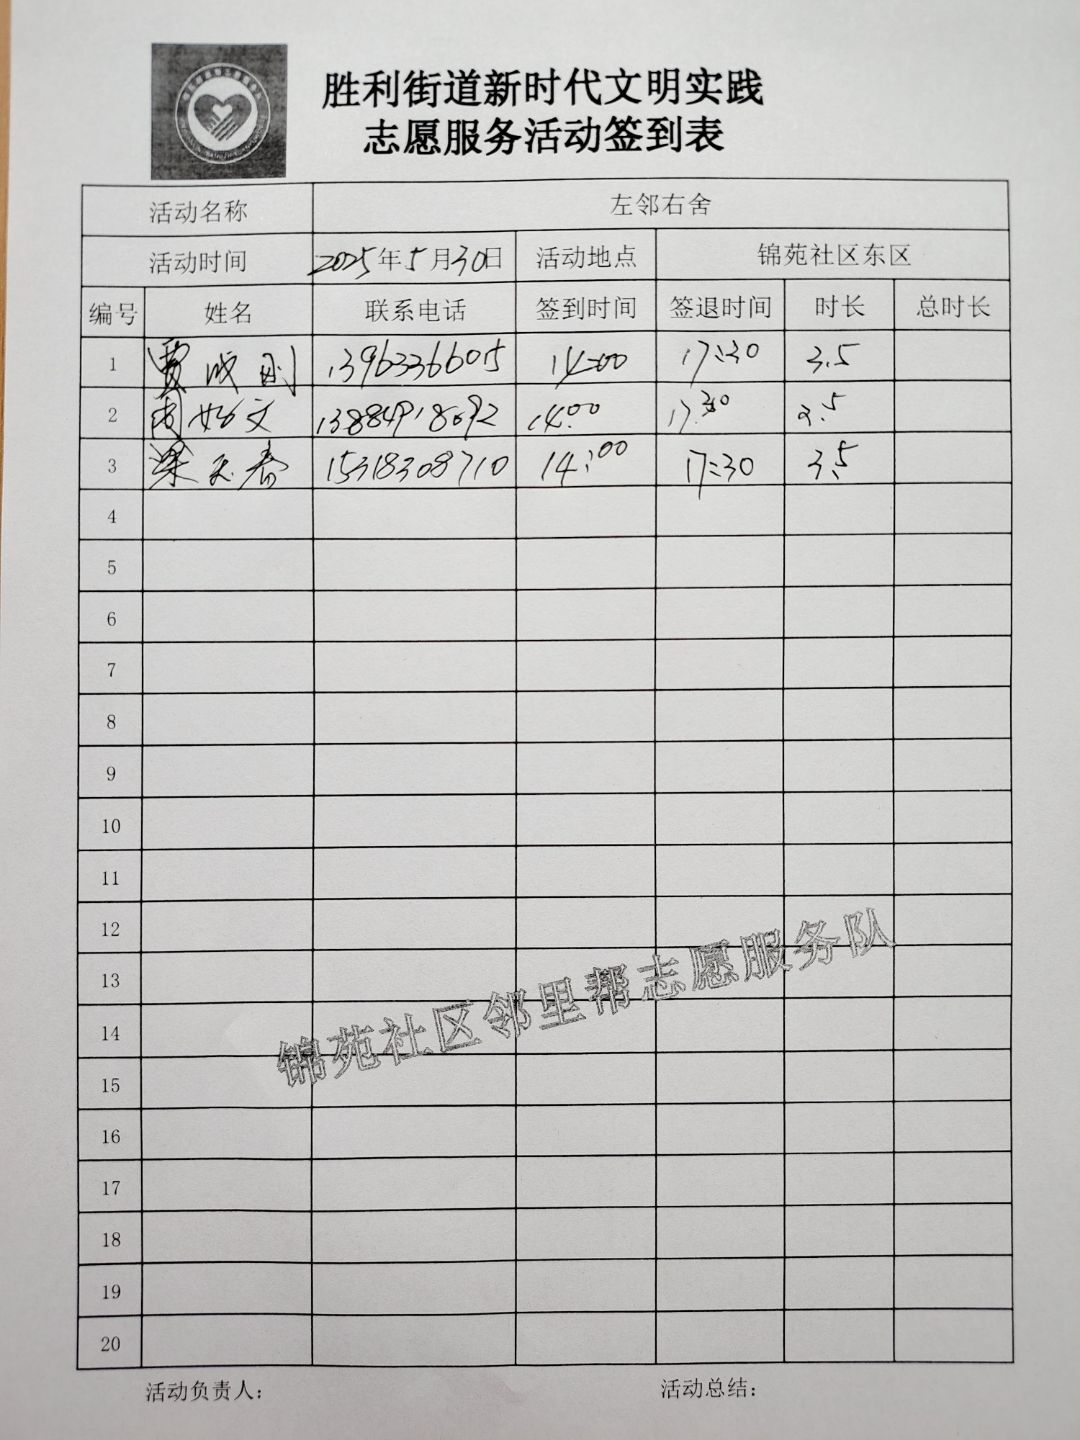 胜利街道新时代文明实践
志愿服务活动签到表
活动名称 左邻右舍
活动时间 2025年5月30日 活动地点 锦苑社区东区
编号 姓名 联系电话 签到时间 签退时间 时长 总时长
1 贾成刚 13963366015 14:00 17:30 3.5
2 周文 13884918692 14:00 17:30 3.5
3 梁春 15318308710 14:00 17:30 3.5
4
5
6
7
8
9
10
11
12
13
14
15
16
17
18
19
20
锦苑社区邻里帮志愿服务队
活动负责人： 活动总结：